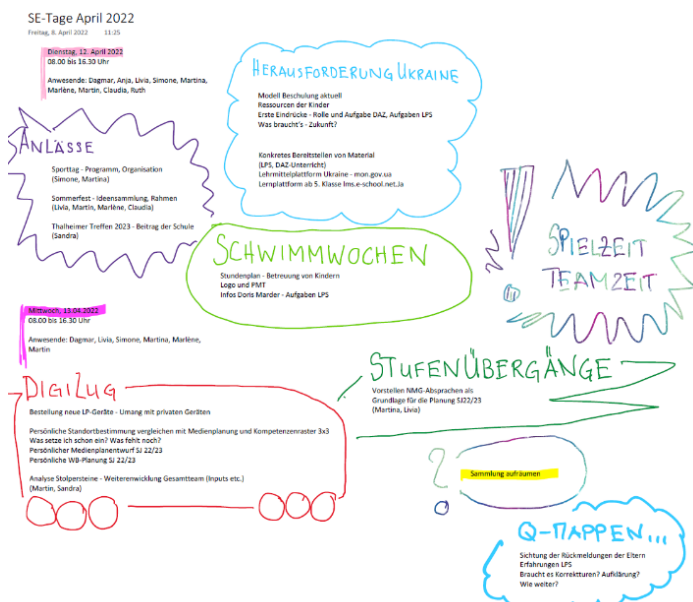 SE-Tage April 2022
Freitag, 8. April 2022 11:25
Dienstag, 12. April 2022
08.00 bis 16.30 Uhr
Anwesende: Dagmar, Anja, Livia, Simone, Martina,
Marlène, Martin, Claudia, Ruth
HERAUSFORDERUNG UKRAINE
Modell Beschulung aktuell
Ressourcen der Kinder
Erste Eindrücke - Rolle und Aufgabe DAZ, Aufgaben LPS
Was braucht's - Zukunft?
Konkretes Bereitstellen von Material
(LPS, DAZ-Unterricht)
Lehrmittelplattform Ukraine - mon.gov.ua
Lernplattform ab 5. Klasse lms.e-school.net.ua
ANLÄSSE
Sporttag - Programm, Organisation
(Simone, Martina)
Sommerfest - Ideensammlung, Rahmen
(Livia, Martin, Marlène, Claudia)
Thalheimer Treffen 2023 - Beitrag der Schule
(Sandra)
SCHWIMMWOCHEN
Stundenplan - Betreuung von Kindern
Logo und PMT
Infos Doris Marder - Aufgaben LPS
SPIELZEIT
TEAMZEIT
!
Mittwoch, 13.04.2022
08.00 bis 16.30 Uhr
Anwesende: Dagmar, Livia, Simone, Martina, Marlène,
Martin
STUFENÜBERGÄNGE
Vorstellen NMG-Absprachen als
Grundlage für die Planung SJ22/23
(Martina, Livia)
DIGIZUG
Bestellung neue LP-Geräte - Umang mit privaten Geräten
Persönliche Standortbestimmung vergleichen mit Medienplanung und Kompetenzenraster 3x3
Was setze ich schon ein? Was fehlt noch?
Persönlicher Medienplanentwurf SJ 22/23
Persönliche WB-Planung SJ 22/23
Analyse Stolpersteine - Weiterenwicklung Gesamtteam (Inputs etc.)
(Martin, Sandra)
?
Sammlung aufräumen
Q-MAPPEN...
Sichtung der Rückmeldungen der Eltern
Erfahrungen LPS
Braucht es Korrektturen? Aufklärung?
Wie weiter?